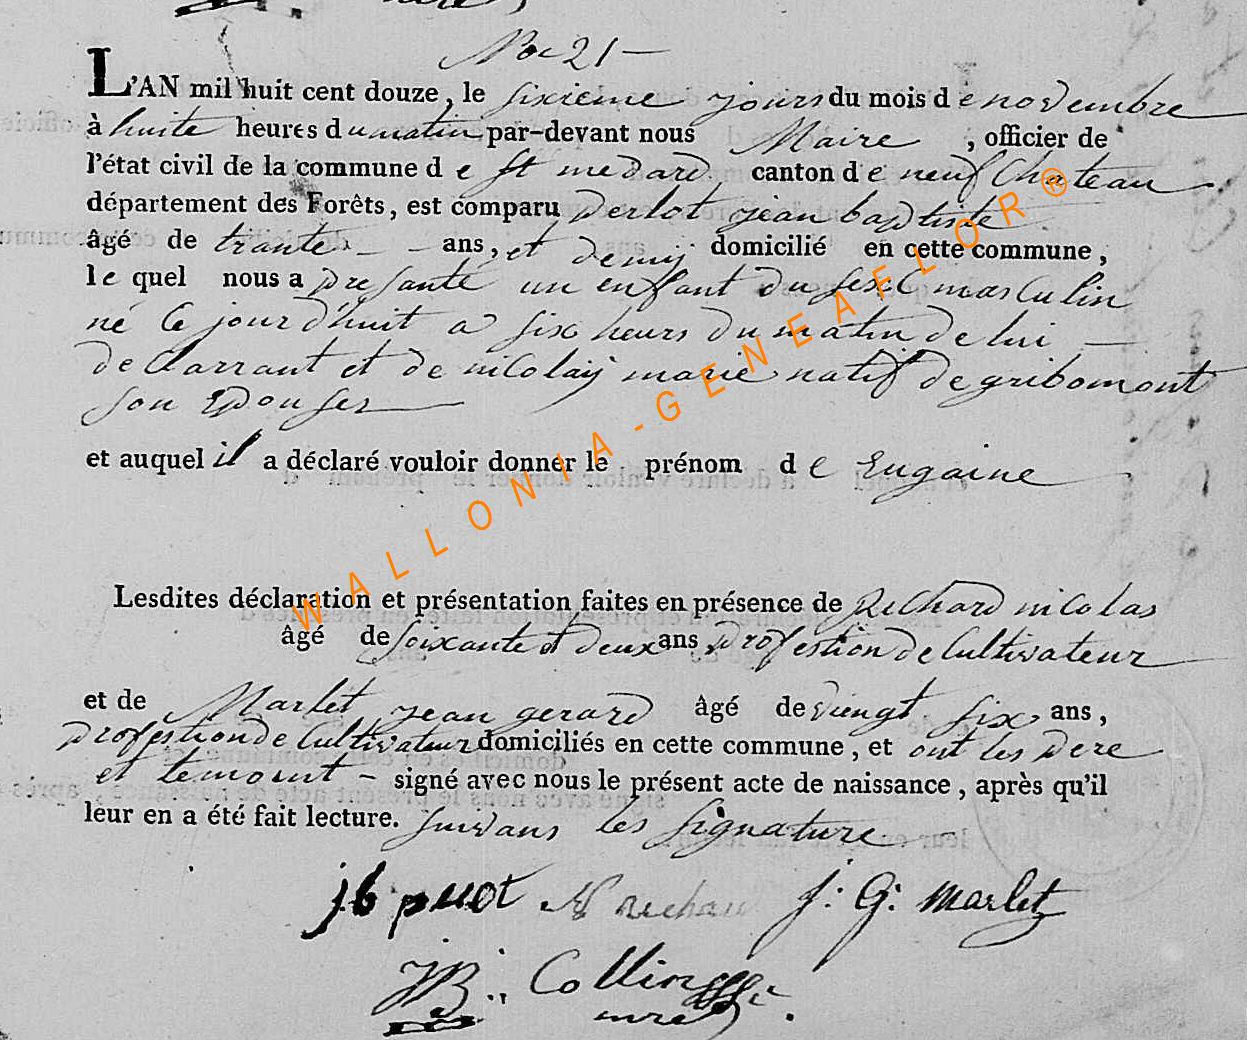 No 21 —
L'AN mil huit cent douze, le sixieme jours du mois de novembre
à huite heures du matin par-devant nous Maire , officier de
l'état civil de la commune de St medard, canton de neufchateau
département des Forêts, est comparu perlot jean baptiste
âgé de trante — ans, et demij domicilié en cette commune,
le quel nous a presanté un enfant du sexe masculin
né ce jour d'huit a six heurs du matin de lui —
declarrant et de nicolaij marie natif de gribomont
son Epouser —
et auquel il a déclaré vouloir donner le prénom de Eugaine
Lesdites déclaration et présentation faites en présence de Richard nicolas
âgé de soixante et deux ans profestion de Cultivateur
et de Marlet jean gerard âgé de viengt six ans,
profestion de Cultivateur domiciliés en cette commune, et ont les pere
et temoint – signé avec nous le présent acte de naissance, après qu'il
leur en a été fait lecture. suivans les signature —
jb N richau J: G: marlet
JB.. Collin
mre
WALLONIA-GENEAFLOR®